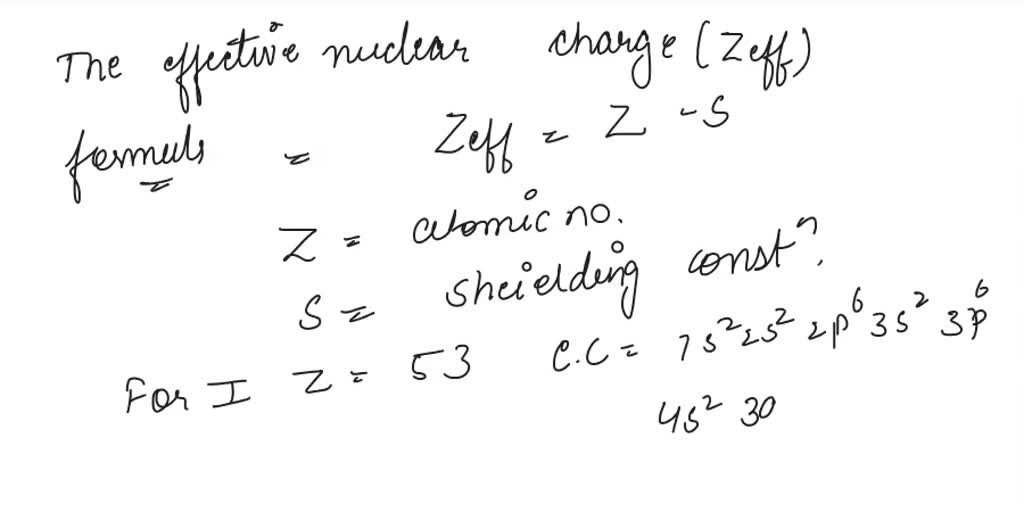 The effective nuclear charge (Zeff)
formuls = Zeff = Z - S
Z = atomic no.
S = sheielding const?
For I Z = 53 e.C = 1s² 2s² 2p⁶ 3s² 3p⁶
4s² 30